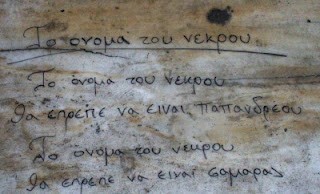 Το ονομα του νεκρου
Το ονομα του νεκρου
θα επρεπε να ειναι παπανδρεου
Το ονομα του νεκρου
θα επρεπε να ειναι σαμαρας